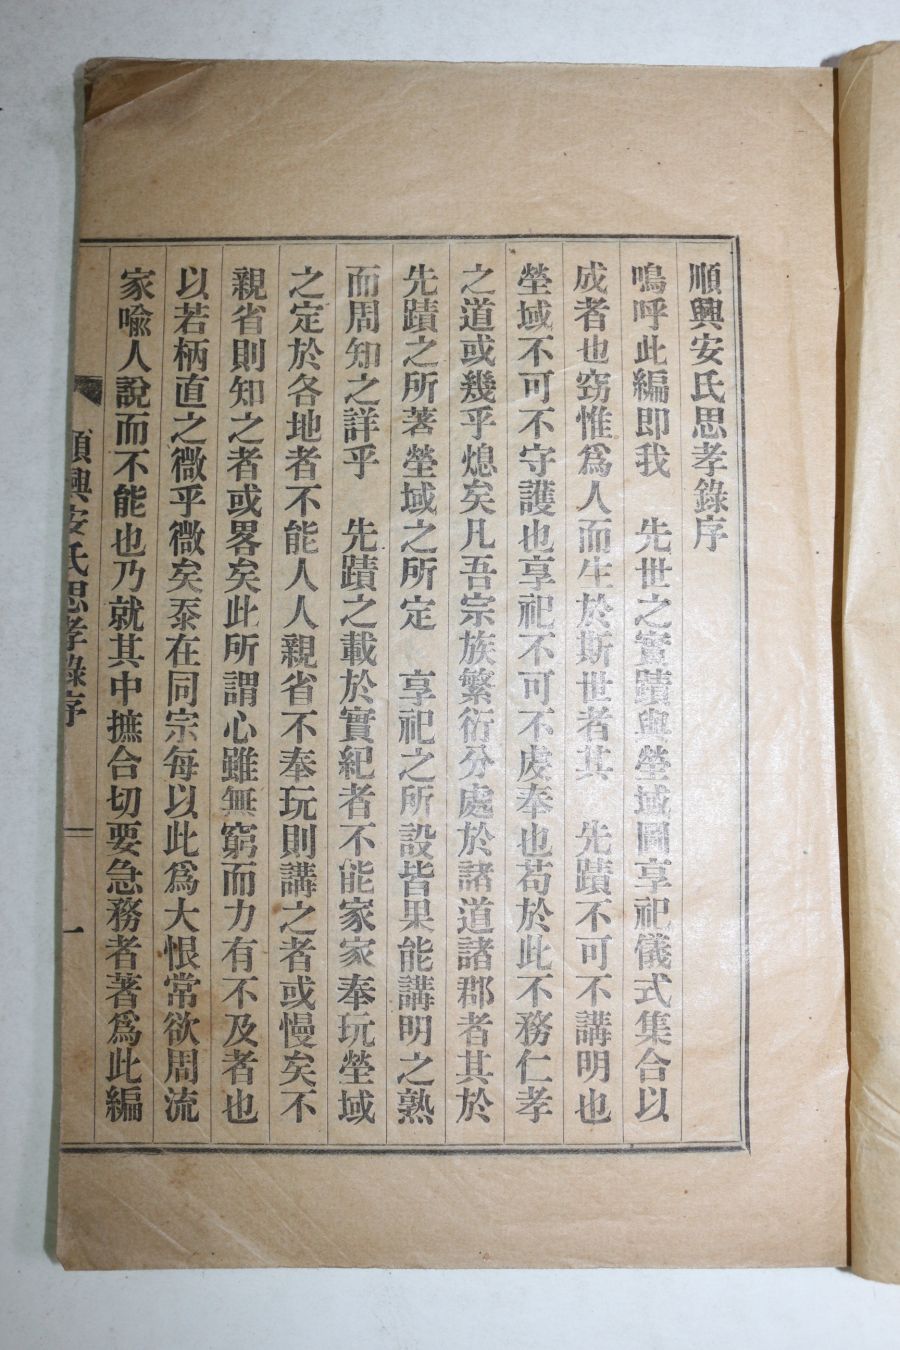 順興安氏思孝錄序
嗚呼此編即我　先世之實蹟與塋域圖享祀儀式集合以
成者也窃惟爲人而生於斯世者其　先蹟不可不講明也
塋域不可不守護也享祀不可不虔奉也苟於此不務仁孝
之道或幾乎熄矣凡吾宗族繁衍分處於諸道諸郡者其於
先蹟之所著塋域之所定　享祀之所設皆果能講明之熟
而周知之詳乎　先蹟之載於實紀者不能家家奉玩塋域
之定於各地者不能人人親省不奉玩則講之者或慢矣不
親省則知之者或畧矣此所謂心雖無窮而力有不及者也
以若柄直之微乎微矣忝在同宗每以此爲大恨常欲周流
家喩人說而不能也乃就其中撫合切要急務者著爲此編
順興安氏思孝錄序
一